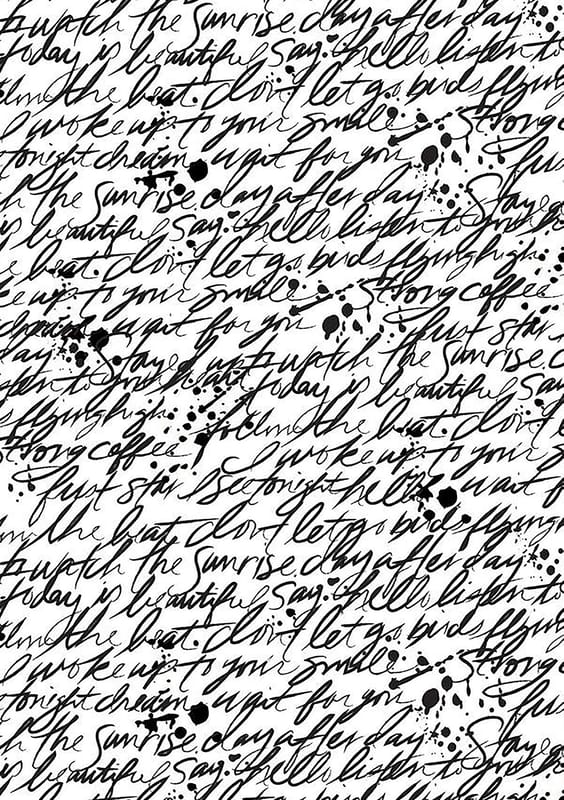 watch the sunrise day after day
today is beautiful say hello listen to
the beat. don't let go birds flying
I woke up to your smile strong
tonight dream wait for you just
the sunrise day after day Stayed
is beautiful say hello listen to your
the beat. don't let go birds flying high
up to your smile strong coffee
dream wait for you just star
day Stayed up to watch the sunrise
listen to your today is beautiful say
flying high follow the beat. don't
strong coffee I woke up to your
just star I see tonight hello wait f
the beat don't let go birds flying
watch the sunrise day after day
today is beautiful say hello listen to
the beat. don't let go birds flying
I woke up to your smile strong
tonight dream wait for you just
the sunrise day after day Stayed
is beautiful say hello listen to your